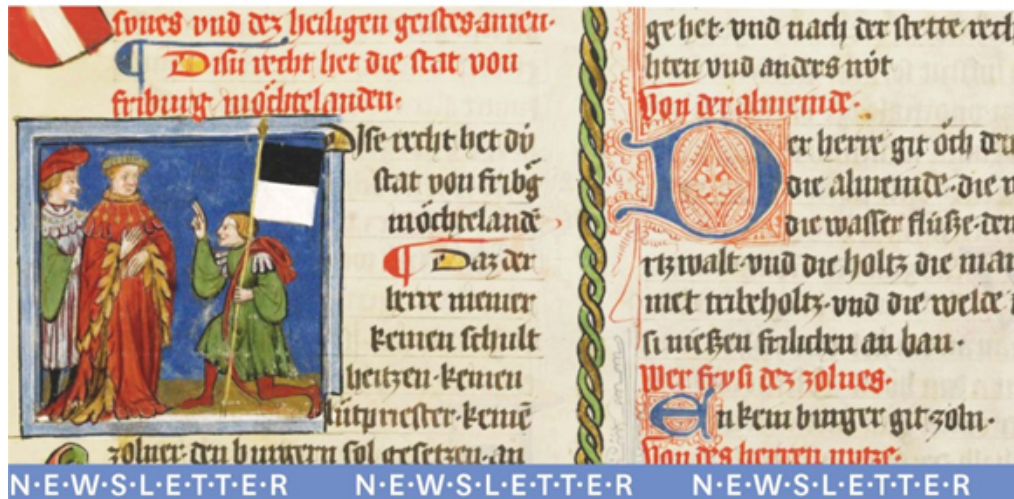 sones vnd dez heiligen geistes amen·
Disu recht het die stat von
friburg· in öchtelanden·
Disse recht het dü
stat von fribg
in öchtelandē
Daz der
herre niemer
keinen schult
heitzen·keinen
lütpriester·keinē
zolner·den burgern sol gesetzen·an
ge het· vnd nach der stette rech
hten vnd anders nüt
Von der almeinde·
Der herre git öch den
die almeinde·die
die wasser flüsze·den
rtzwalt·vnd die holtz die man
met tribeholtz·vnd die welde
si nieszen frilichen an ban·
Wer fry si dez zolnes·
Enkein burger git·zoln·
Von des herren nutze·
N·E·W·S·L·E·T·T·E·R N·E·W·S·L·E·T·T·E·R N·E·W·S·L·E·T·T·E·R